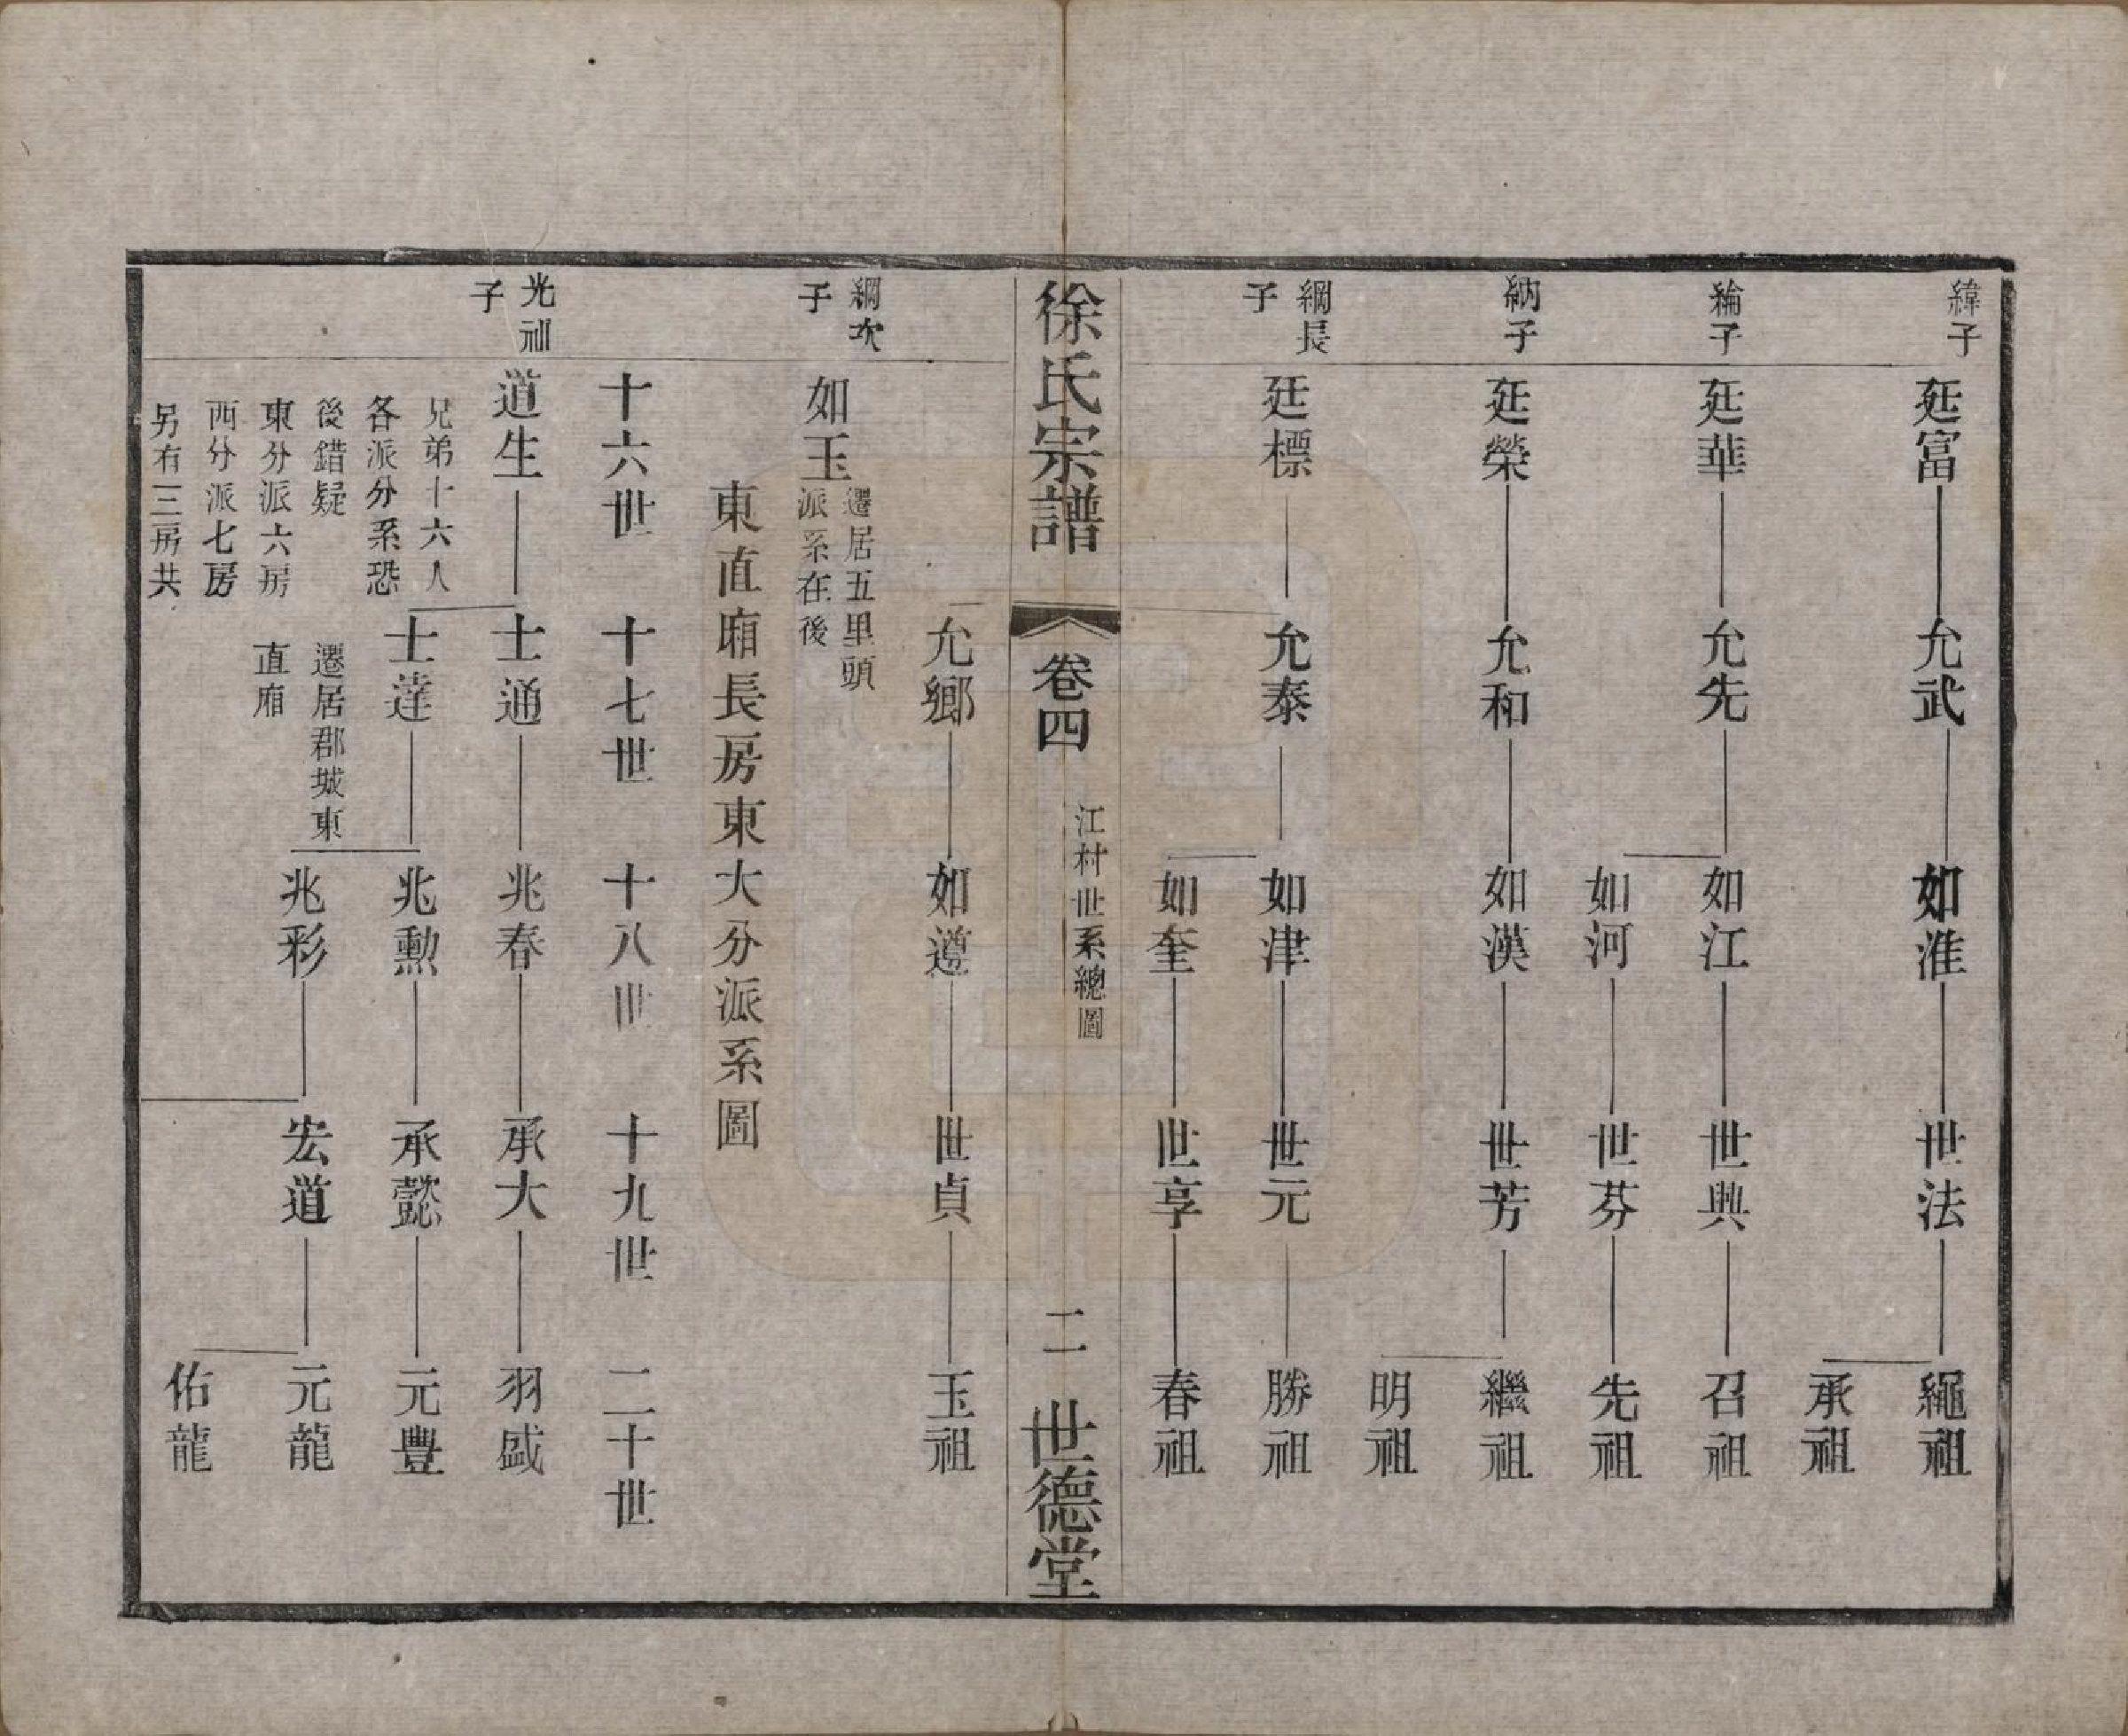 緯子
延富 允武 如淮 世法 繩祖
承祖
綸子
延華 允先 如江 世興 召祖
如河 世芬 先祖
納子
延榮 允和 如漢 世芳 繼祖
明祖
綱長
子
廷標 允泰 如津 世元 勝祖
如奎 世享 春祖
徐氏宗譜 卷四 江村世系總圖 二 世德堂
允鄉 如遵 世貞 玉祖
綱次
子
如玉
遷居五里頭
派系在後
東直廂長房東大分派系圖
十六世 十七世 十八世 十九世 二十世
光訓
子
道生 士通 兆春 承大 羽盛
兄弟十六人
各派分系恐
後錯疑
東分派六房
西分派七房
另有三房共
士達 兆勲 承懿 元豐
遷居郡城東
直廂
兆彩 宏道 元龍
佑龍